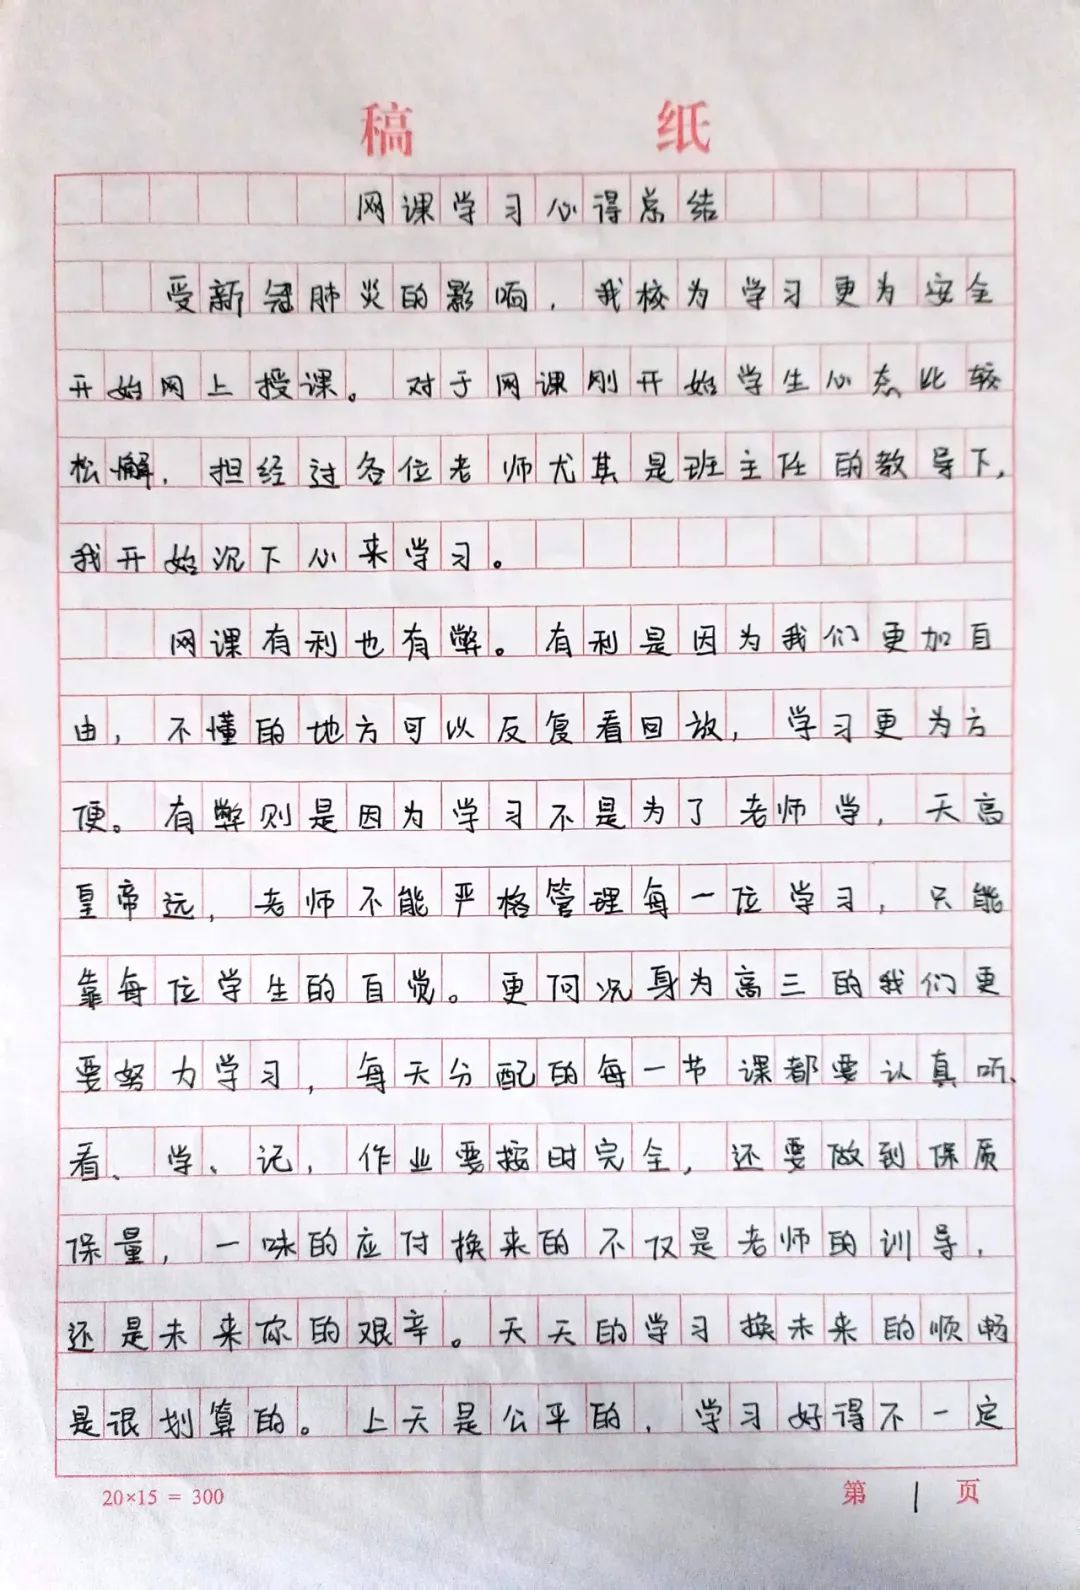 稿 纸
网课学习心得总结
受新冠肺炎的影响，我校为学习更为安全
开始网上授课。对于网课刚开始学生心态比较
松懈，担经过各位老师尤其是班主任的教导下，
我开始沉下心来学习。
网课有利也有弊。有利是因为我们更加自
由，不懂的地方可以反复看回放，学习更为方
便。有弊则是因为学习不是为了老师学，天高
皇帝远，老师不能严格管理每一位学习，只能
靠每位学生的自觉。更何况身为高三的我们更
要努力学习，每天分配的每一节课都要认真听、
看、学、记，作业要按时完全，还要做到保质
保量，一味的应付换来的不仅是老师的训导，
还是未来你的艰辛。天天的学习换未来的顺畅
是很划算的。上天是公平的，学习好得不一定
20×15 = 300
第 1 页